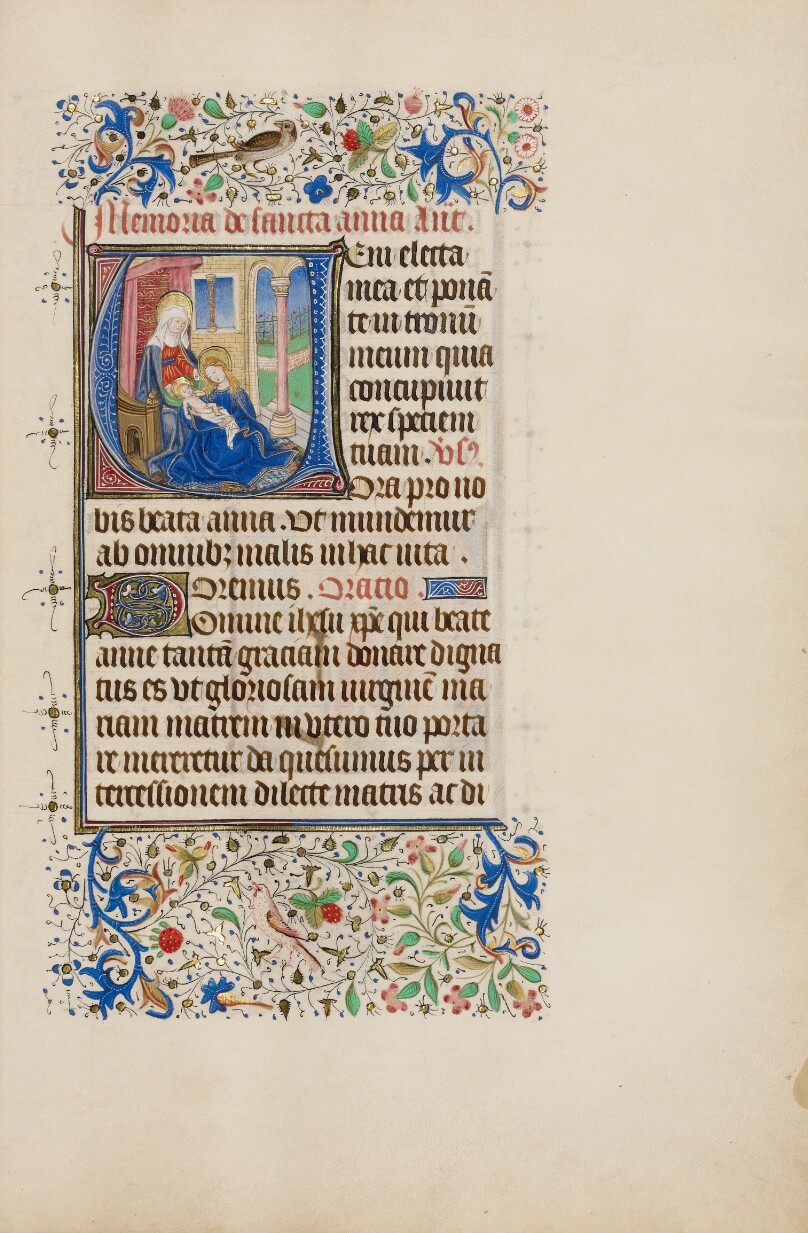 Memoria de sancta anna Añt.
Eni electa
mea et ponā
te in tronū
meum quia
concupiuit
rex speciem
tuam. Vsꝰ.
Ora pro no
bis beata anna. Vt mundemur
ab omnibꝫ malis in hac uita.
Oremus. Oracio.
Domine ihesu xp̄e qui beate
anne tantā graciam donare digna
tus es vt gloriosam uirginē ma
riam matrem in vtero suo porta
re mereretur da quesumus per in
tercessionem dilecte matris ac di